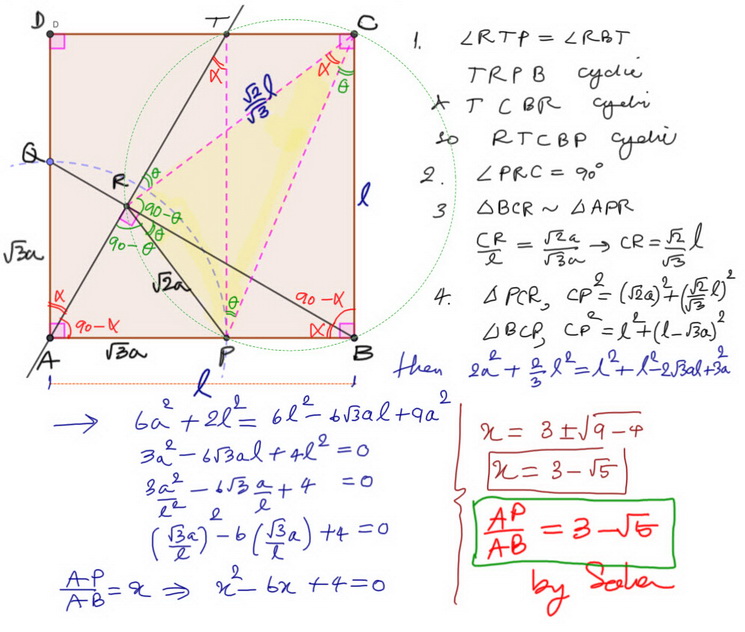 D D T C
α α θ
√2/√3 l
Q
R θ
90-θ
θ
90-θ
l
√3a
√2a
α 90-α
θ
90-α
α
A √3a P B
l
1. ∠RTP = ∠RBT
TRPB cyclic
∧ TCBR cyclic
so RTCBP cyclic
2. ∠PRC = 90°
3 △BCR ~ △APR
CR/l = √2a/√3a → CR = √2/√3 l
4. △PCR, CP² = (√2a)² + (√2/√3 l)²
△BCP, CP² = l² + (l-√3a)²
then 2a² + 2/3 l² = l² + l² - 2√3al + 3a²
→ 6a² + 2l² = 6l² - 6√3al + 9a²
3a² - 6√3al + 4l² = 0
3a²/l² - 6√3 a/l + 4 = 0
(√3a/l)² - 6(√3a/l) + 4 = 0
AP/AB = x ⇒ x² - 6x + 4 = 0
x = 3 ± √9-4
x = 3 - √5
AP/AB = 3 - √5
by